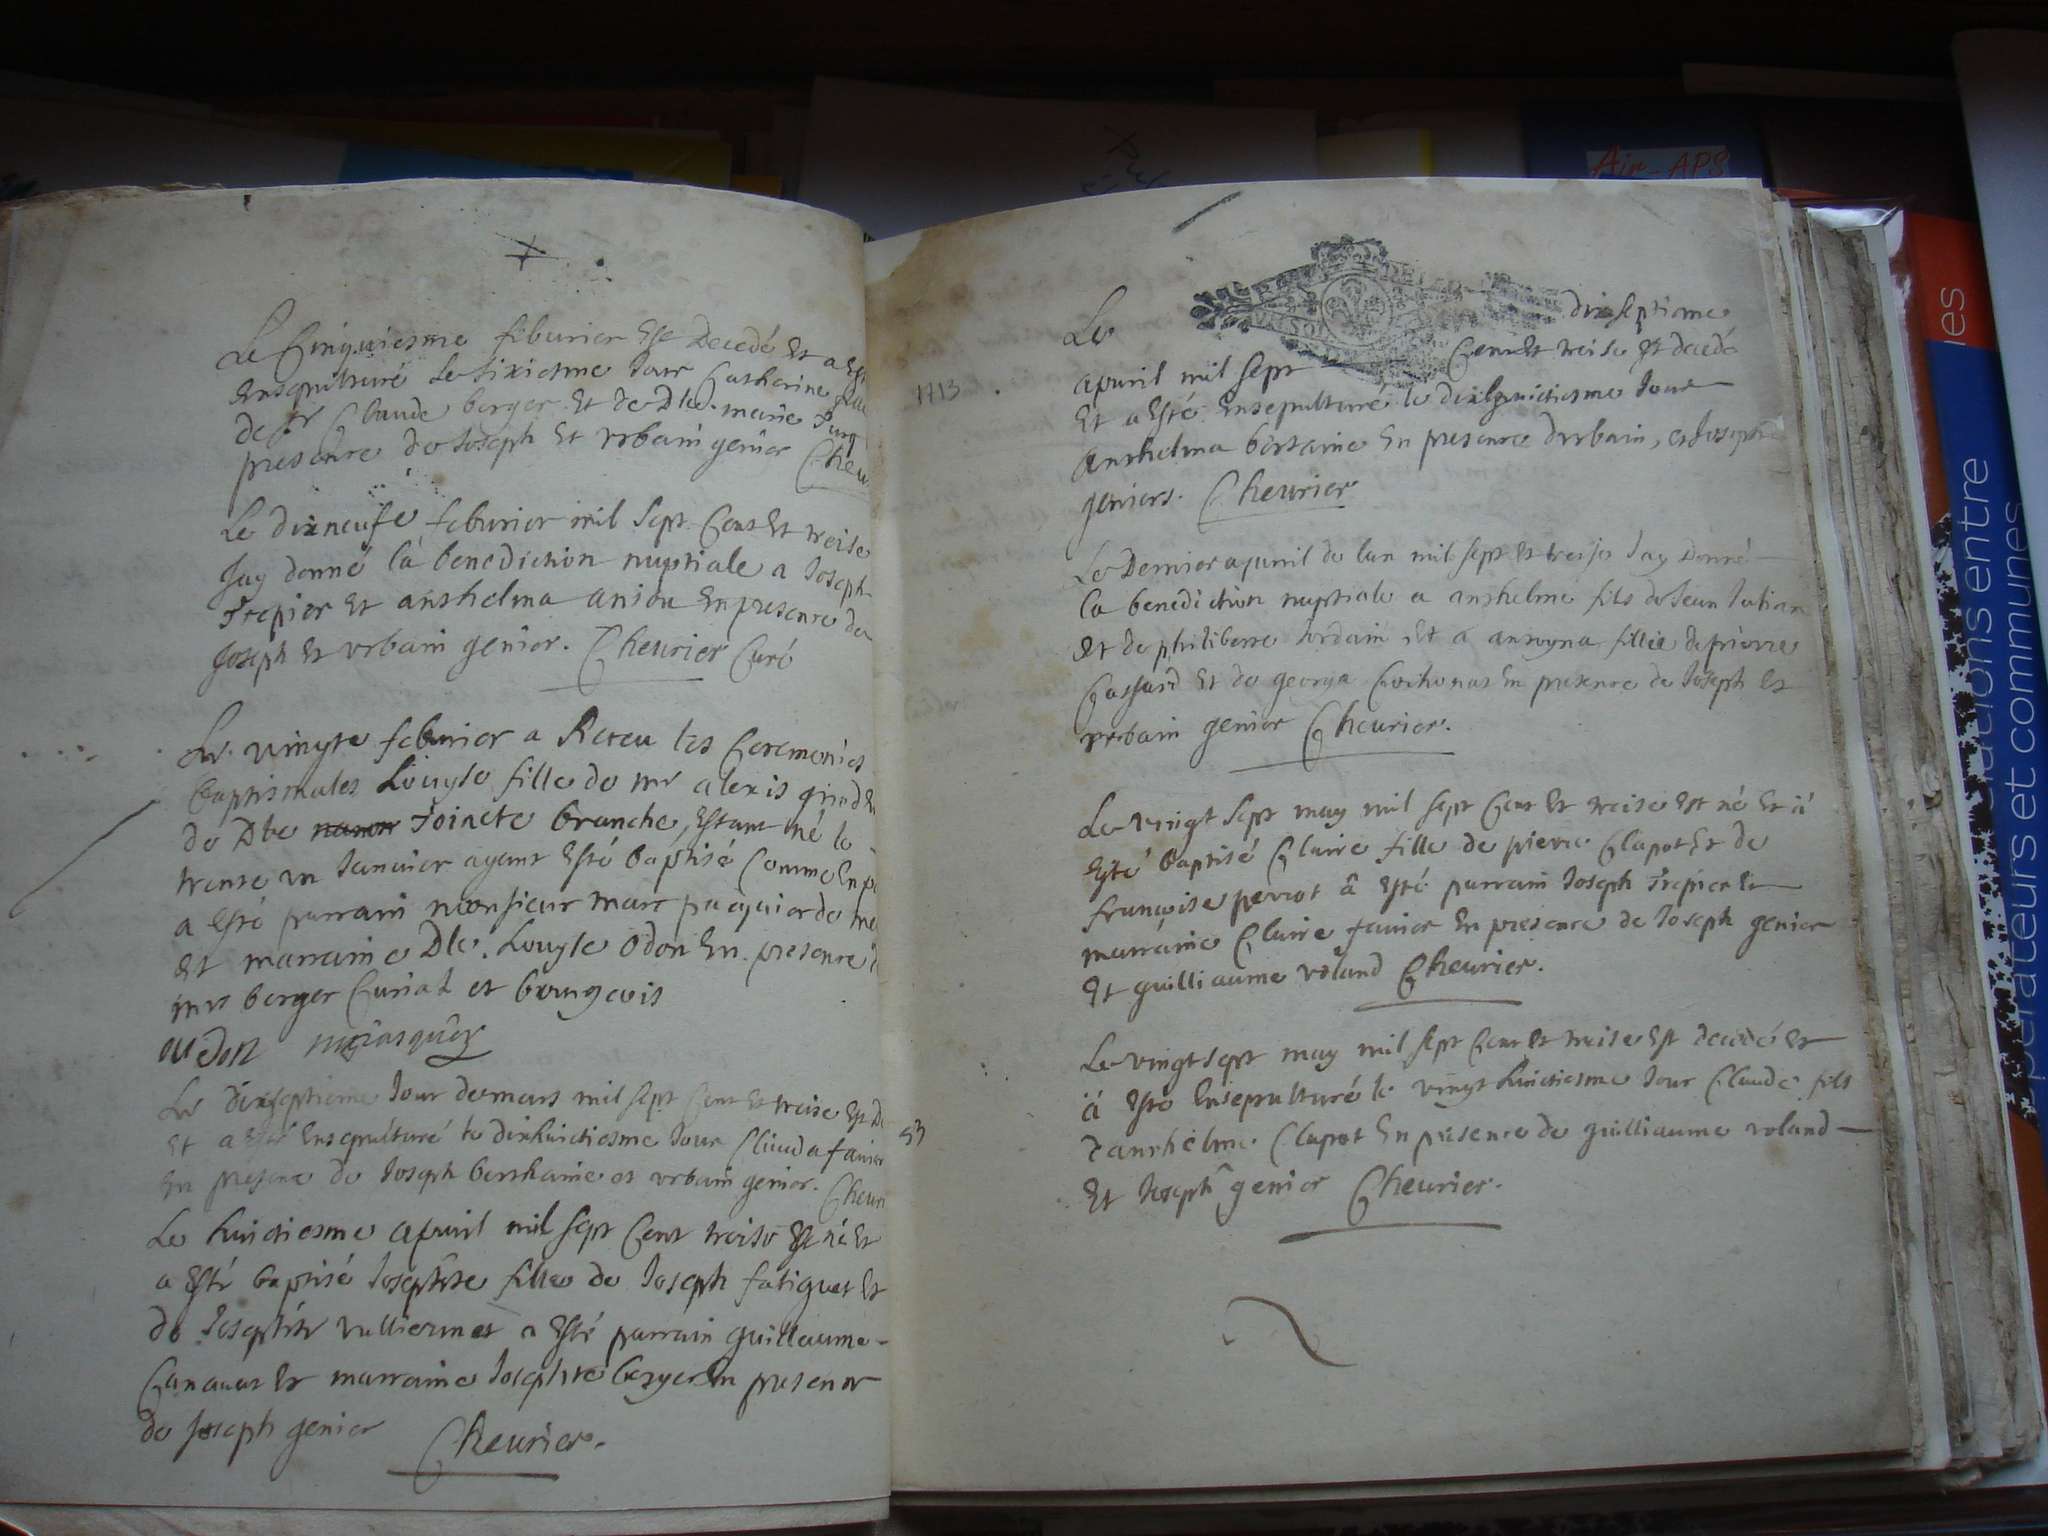 Le Cinquiesme feburier Est Decedé Et a Est
Ensepulturé le sixiesme Jour Catherine
de sr Claude berger Et de Dle marie
presence de Joseph Et vrbain genier Cheu
Le dixneufe feburier mil Sept Cent Et treise
Jay donné la benediction nuptiale a Joseph
Trepier Et anthelma aniou En presence de
Joseph Et vrbain genier. Cheurier Curé
Le vingte feburier a Receu les Ceremonies
baptismales Louyse fille de mr alexis
de Dle Joincte branche, Estant né le
trente vn Januier ayant Esté baptisé Comme En
a Esté parrain monsieur marc pasquier de
Et marraine Dle. Louyse Odon En presence
mrs berger Curial et bourgeois
oudon
Le dixseptieme Jour de mars mil sept Cent Et treise Est De
Et a Esté Ensepulturé le dixhuictiesme Jour Clauda fauier
En presence de Joseph berthaine et vrbain genier. Cheuri
Le huictiesme apuril mil sept Cent treise Est né Et
a Esté baptisé Josephte fille de Joseph fatiguet Et
de Josephte vulliermet a Esté parrain guillaume
Canauat Et marraine Josephte berger En presence
de Joseph genier Cheurier.
53
1713
Le dixseptieme
apuril mil sept Cent Et treise Est decedé
Et a Esté Ensepulturé le dixhuictiesme Jour
anthelma bertaine En presence d'vrbain, et Joseph
geniers. Cheurier
Le Dernier apuril de lan mil sept Et treise Jay Donné
la benediction nuptiale a anthelme fils de Jean
Et de philiberte Jordain Et a antoyna fillie de pierre
Cassard Et de georga Cochonat En presence de Joseph Et
vrbain genier Cheurier.
Le vingt sept may mil sept Cent Et treise Est né Et a
Esté baptisé Claire fille de pierre Clapot Et de
françoise perrot a Esté parrain Joseph Trepier Et
marraine Claire fauier En presence de Joseph genier
Et guilliaume voland Cheurier.
Le vingt sept may mil sept Cent Et treise Est decedé Et
a Esté Ensepulturé le vingt huictiesme Jour Claude fils
d'anthelme Clapot En presence de guilliaume voland
Et Joseph genier Cheurier.
Air-APS
ations entre
érateurs et communes